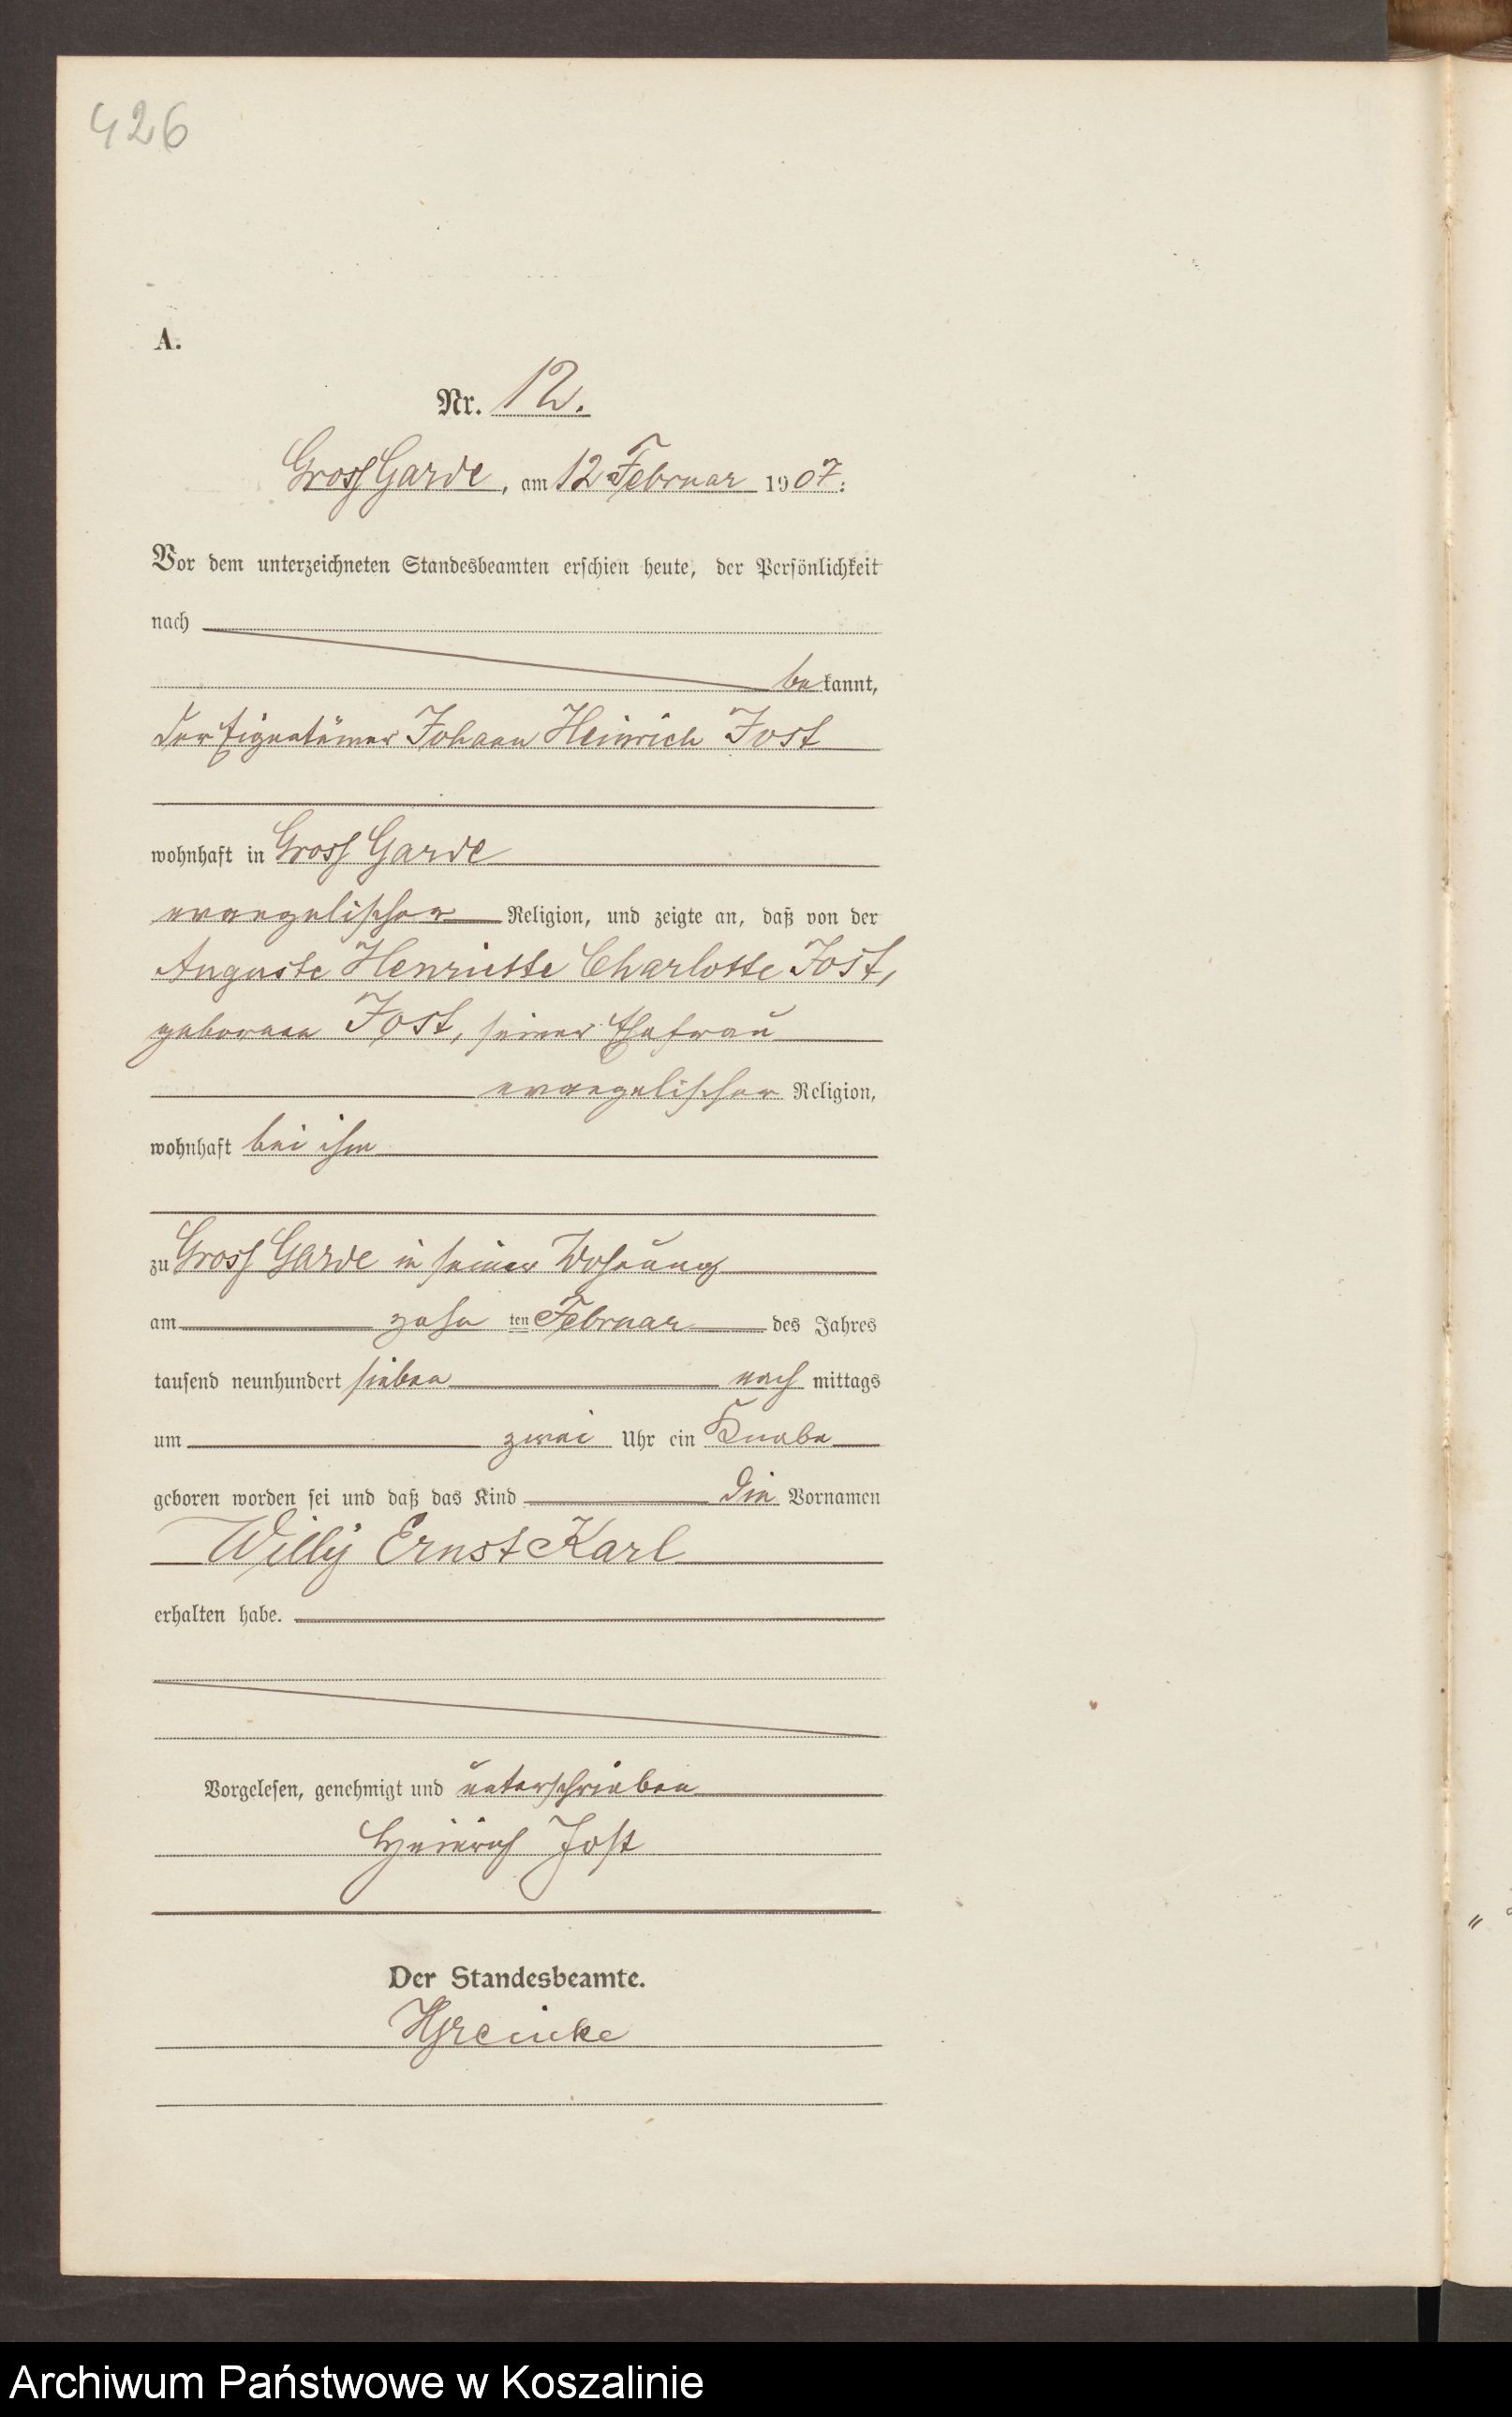 426
A.
Nr. 12.
Gross Garde, am 12 Februar 1907.
Vor dem unterzeichneten Standesbeamten erschien heute, der Persönlichkeit
nach
bekannt,
der Eigentümer Johann Heinrich Jost
wohnhaft in Gross Garde
evangelischer Religion, und zeigte an, daß von der
Auguste Henriette Charlotte Jost,
geborenen Jost, seiner Ehefrau
evangelischer Religion,
wohnhaft bei ihm
zu Gross Garde in seiner Wohnung
am zehn ten Februar des Jahres
tausend neunhundert sieben nach mittags
um zwei Uhr ein Knabe
geboren worden sei und daß das Kind die Vornamen
Willy Ernst Karl
erhalten habe.
Vorgelesen, genehmigt und unterschrieben
Heinrich Jost
Der Standesbeamte.
Archiwum Państwowe w Koszalinie